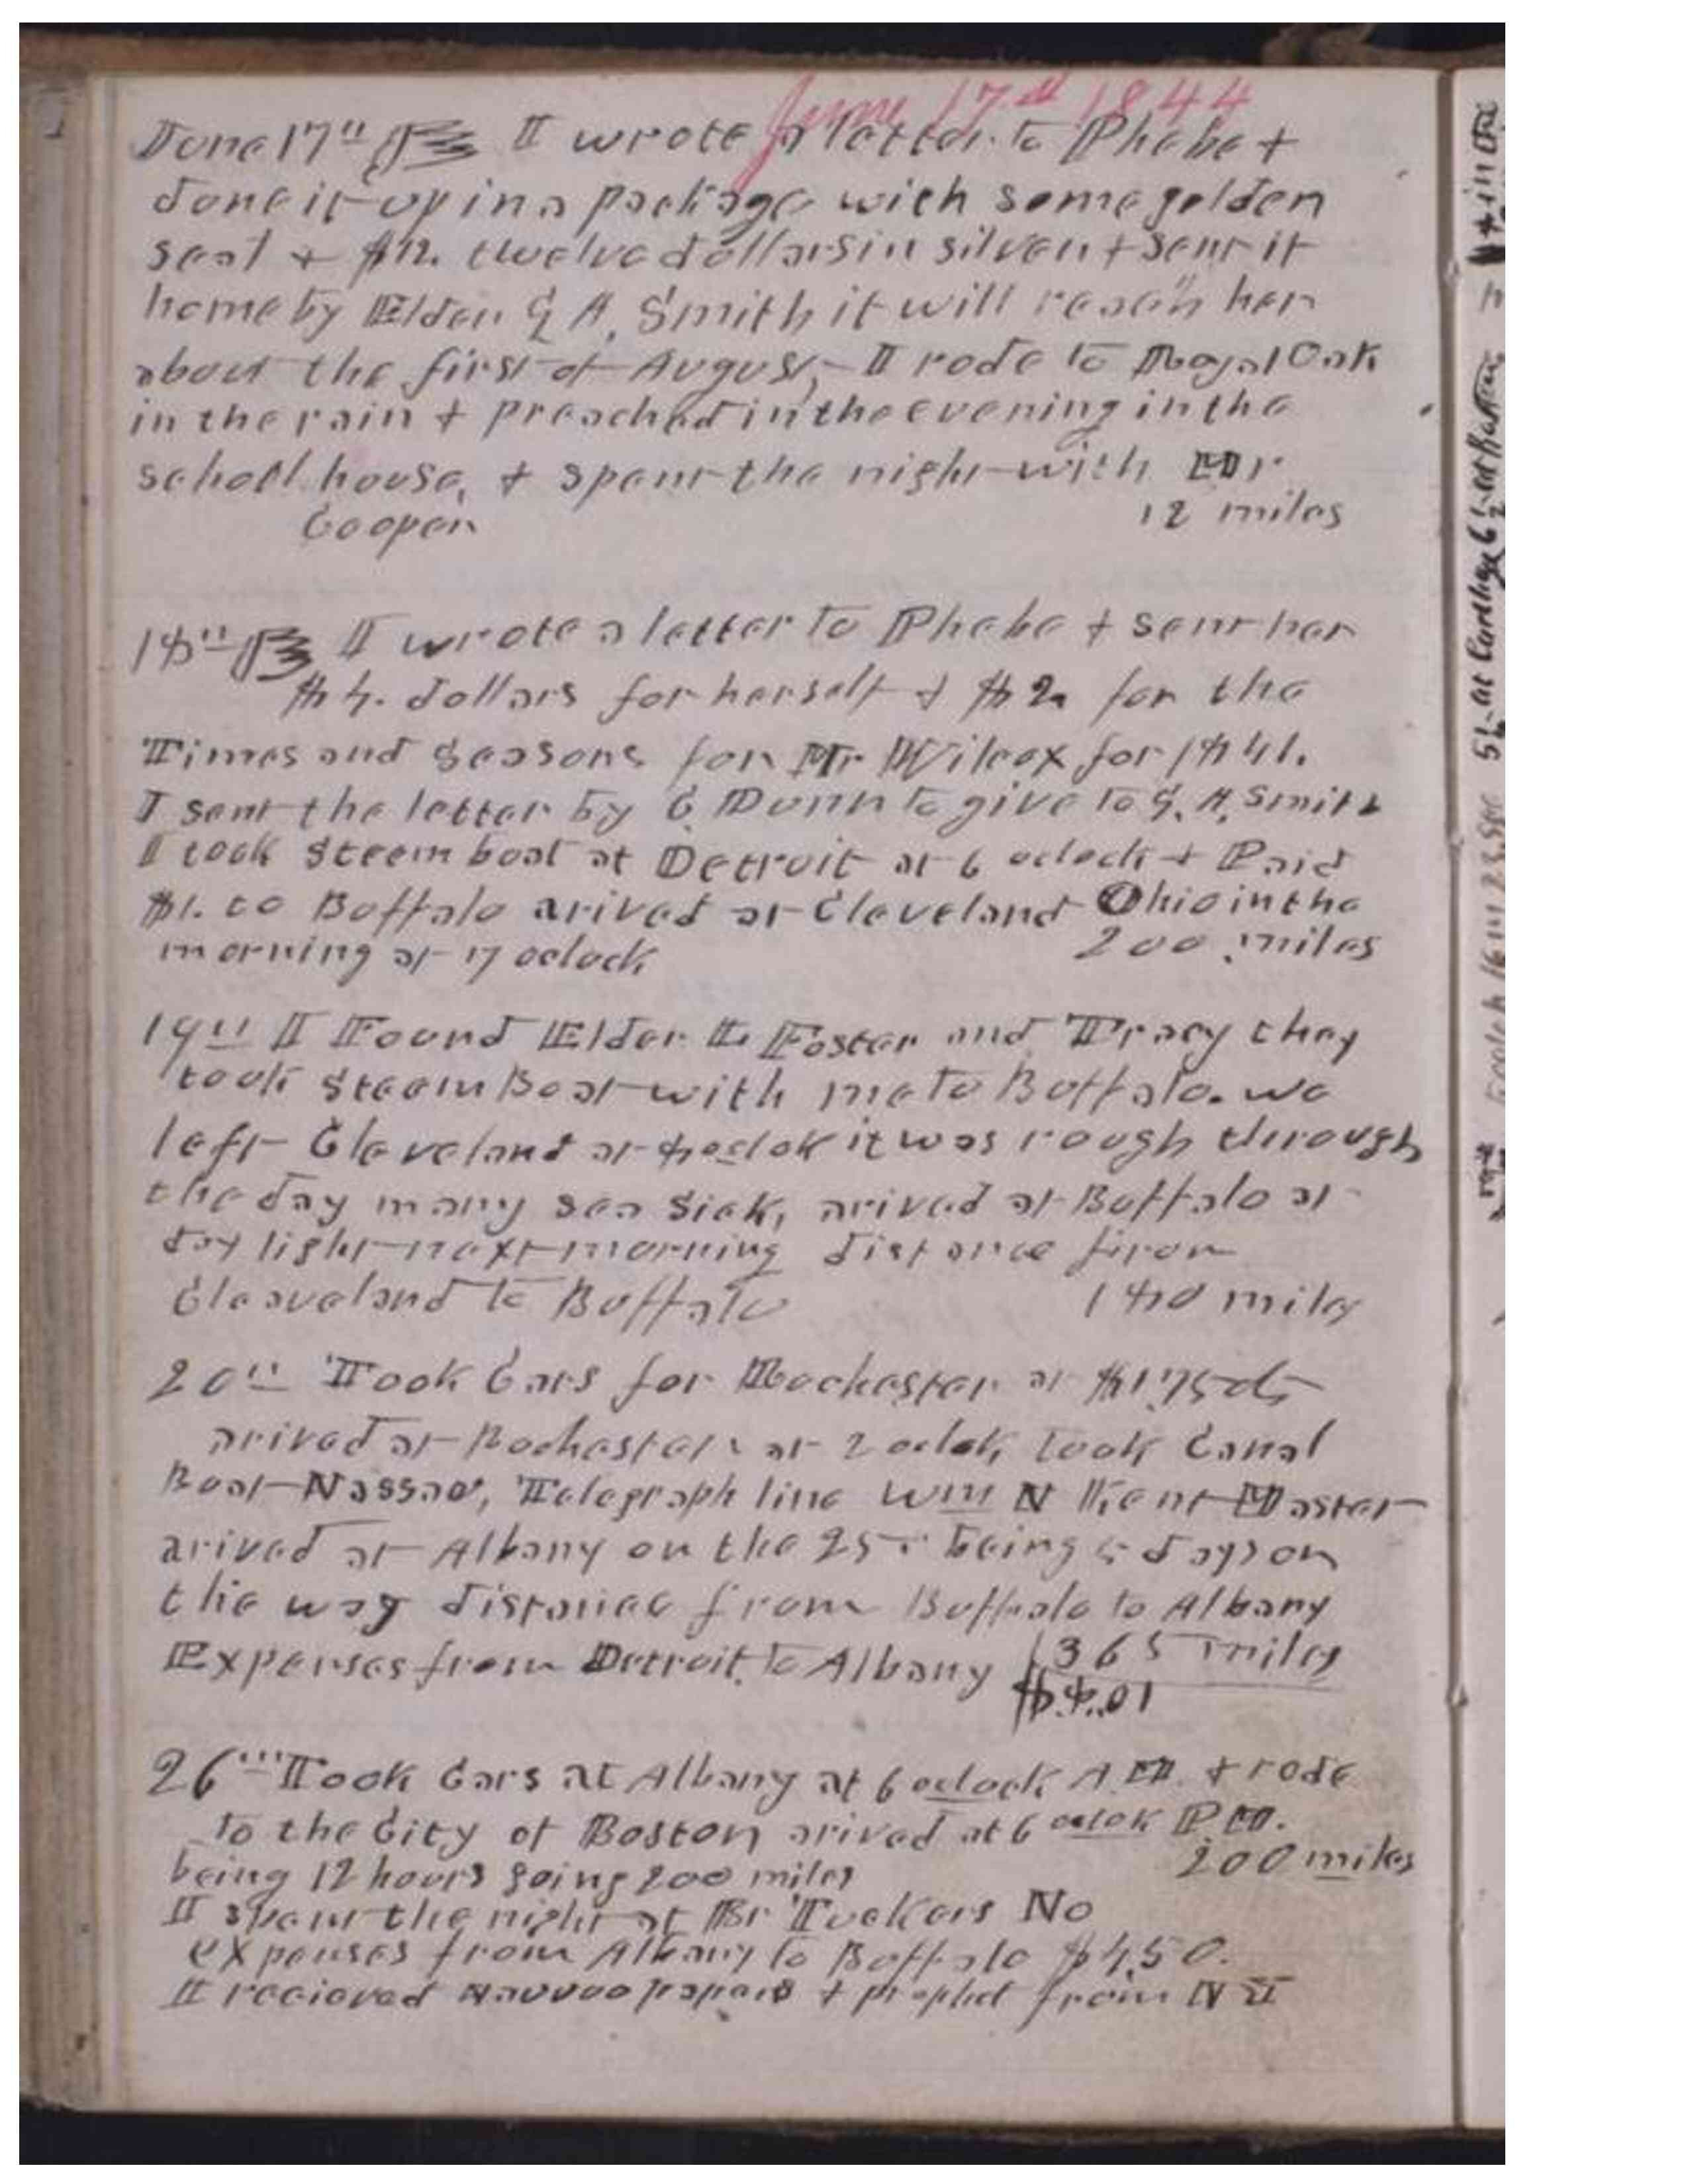 June 17th 1844
June 17th I wrote a letter to Phebe +
done it up in a package with some golden
seal + $12. twelve dollars in silver + sent it
home by Elder G A. Smith it will reach her
about the first of August, I rode to Royal Oak
in the rain + preached in the evening in the
scholl house, + spent the night with Mr
Cooper 12 miles
18th I wrote a letter to Phebe + sent her
$4. dollars for herself + $2. for the
Times and Seasons for Mr Wilcox for 1841.
I sent the letter by C Dunn to give to G. A. Smith
I took Steem boat at Detroit at 6 oclock + Paid
$1. to Buffalo arived at Cleveland Ohio in the
morning at 7 oclock 200 miles
19th I Found Elder L Foster and Tracy they
took Steem Boat with me to Buffalo. we
left Cleveland at 8 oclok it was rough through
the day many sea sick, arived at Buffalo at
day light next morning distance from
Cleaveland to Buffalo 180 miles
20th Took Cars for Rochester at $1.75 cts
arived at Rochester at 2 oclok, took Canal
Boat Nassau, Telegraph line Wm N Kent Master
arived at Albany on the 25th being 5 days on
the way distance from Buffalo to Albany
Expenses from Detroit to Albany 365 miles
$8.01
26th Took Cars at Albany at 6 oclock A.M. + rode
to the City of Boston arived at 6 oclok PM.
being 12 hours going 200 miles 200 miles
I spent the night at Br Tuckers No
expenses from Albany to Buffalo $4,50.
I recieved Nauvoo papers + prophet from N Y